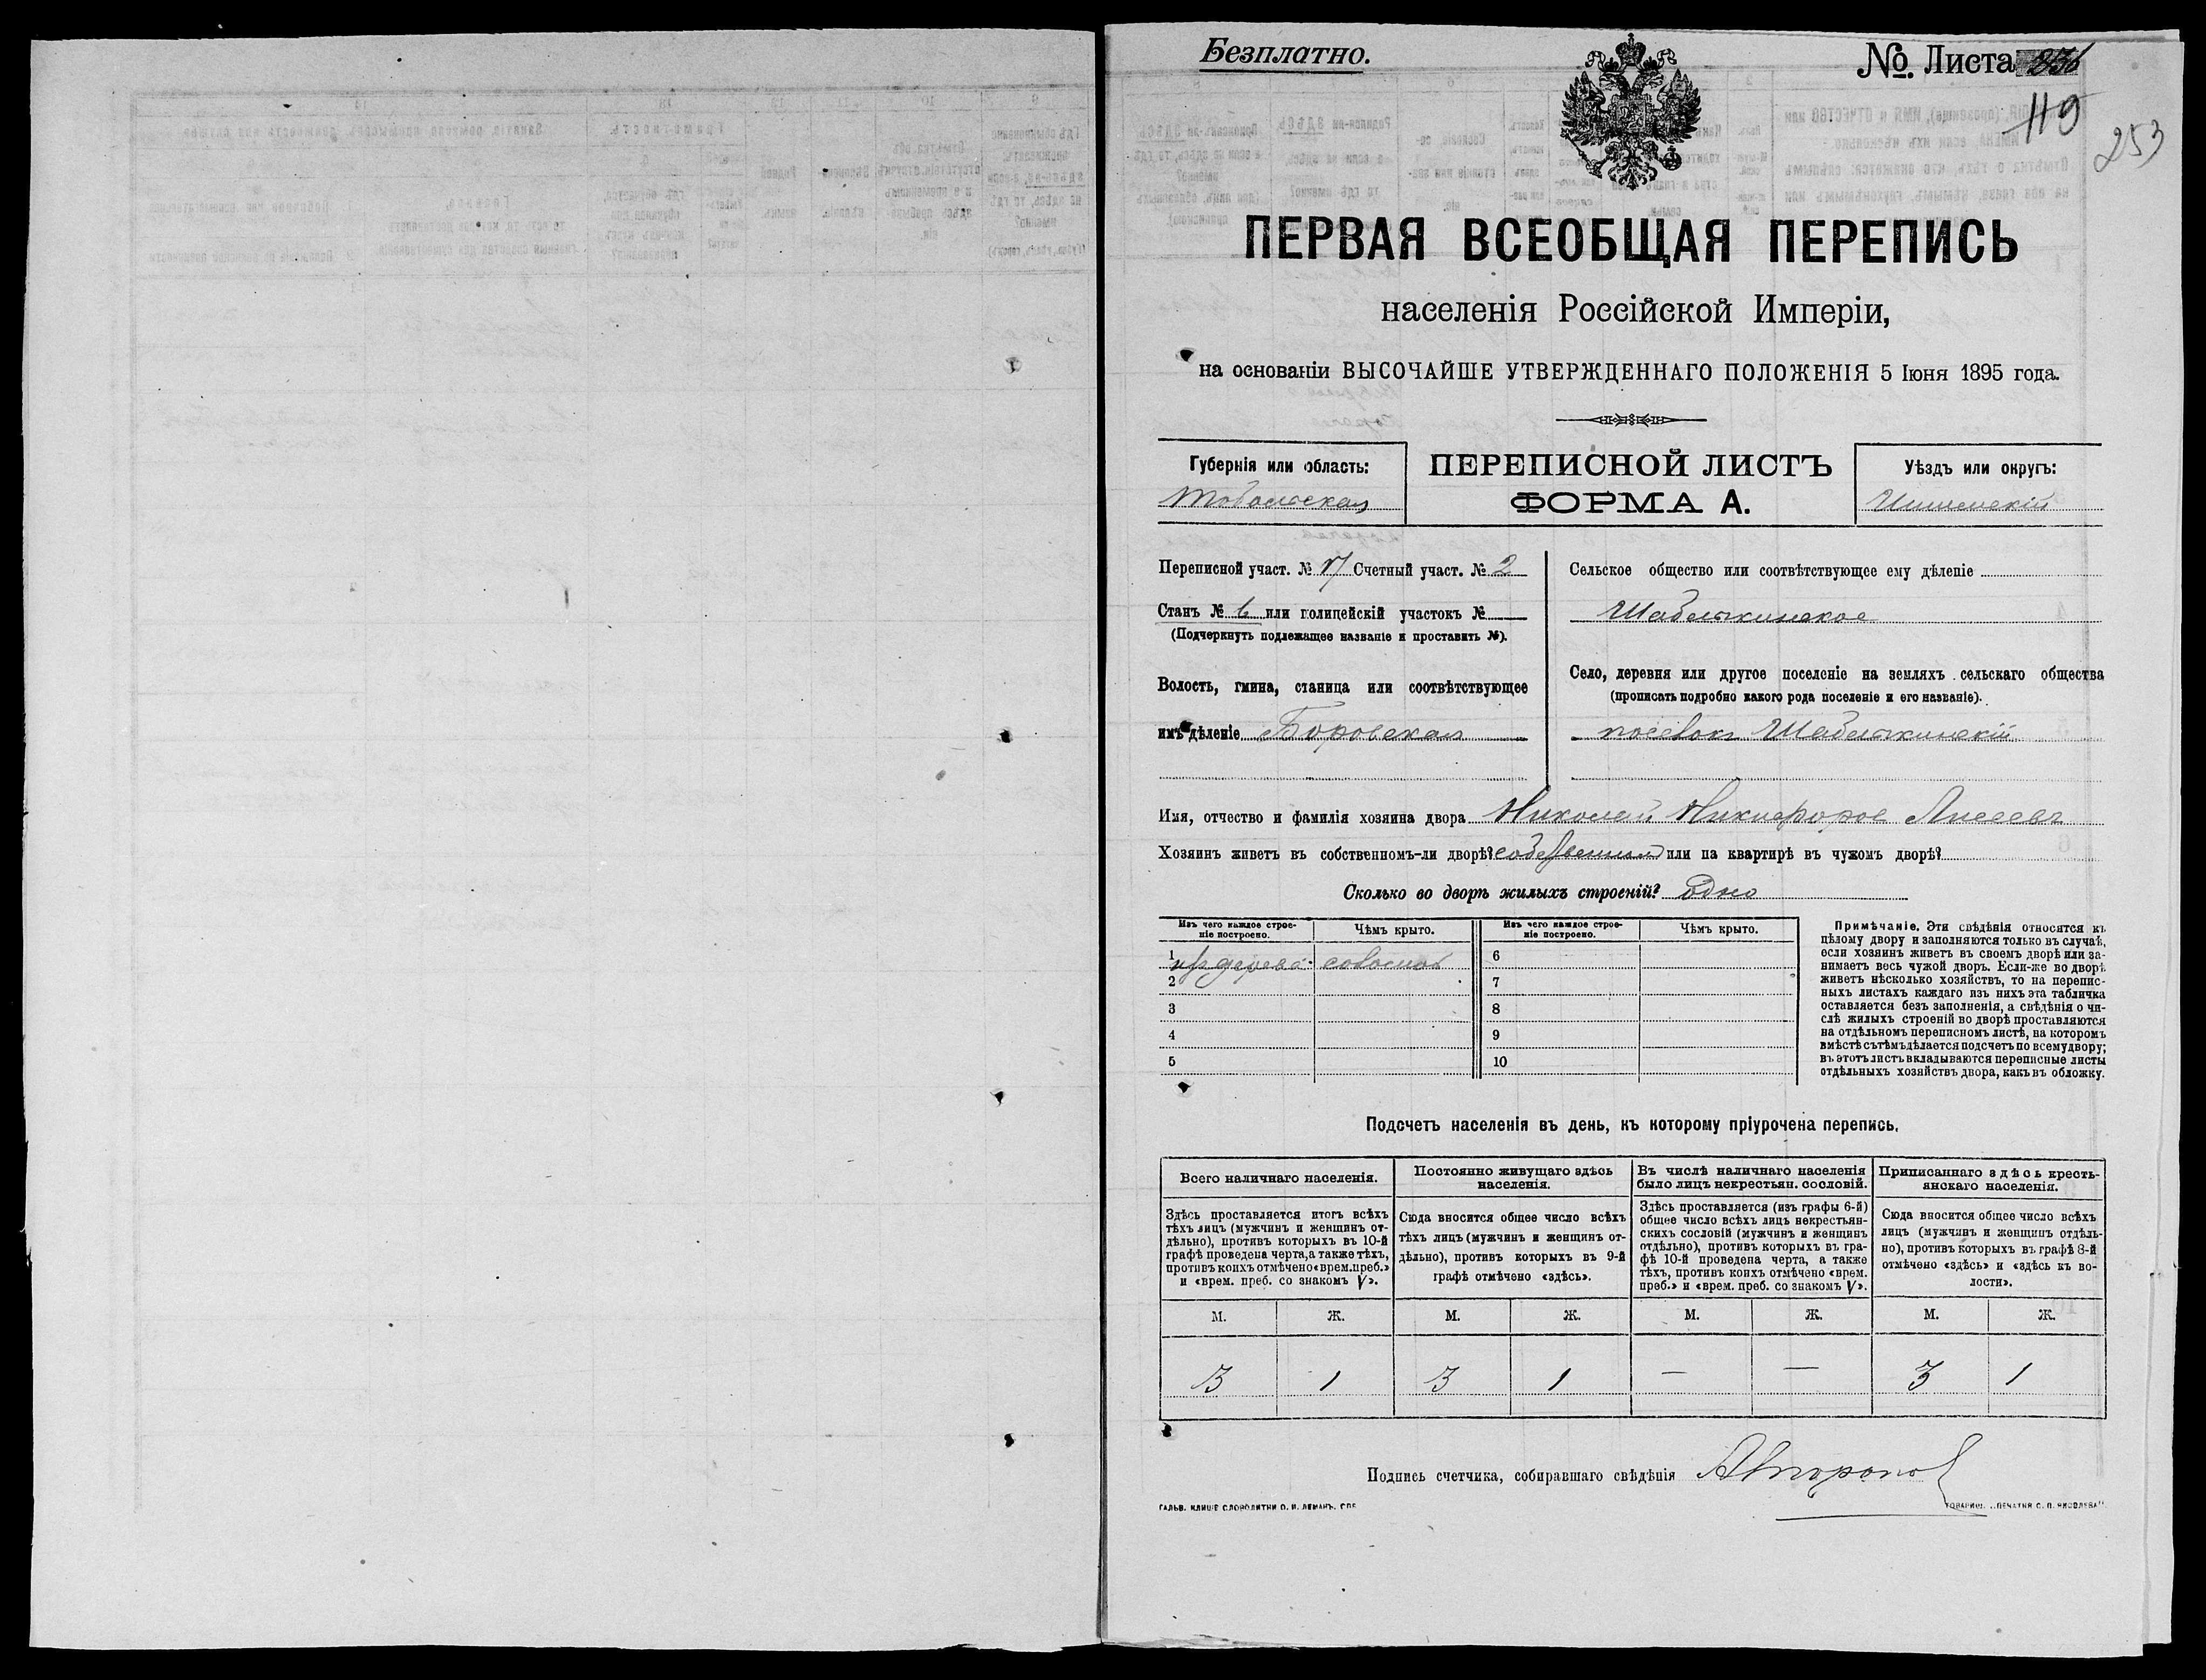 Безплатно.
№. Листа
119
253
ПЕРВАЯ ВСЕОБЩАЯ ПЕРЕПИСЬ
населенія Россійской Имперіи,
на основаніи ВЫСОЧАЙШЕ УТВЕРЖДЕННАГО ПОЛОЖЕНІЯ 5 Іюня 1895 года.
Губернія или область:
Тобольская
ПЕРЕПИСНОЙ ЛИСТЪ
ФОРМА А.
Уѣздъ или округъ:
Ишимскій
Переписной участ. № Счетный участ. № 2
Станъ № 6 или полицейскій участокъ № —
(Подчеркнуть подлежащее названіе и проставить №).
Волость, гмина, станица или соотвѣтствующее
имъ дѣленіе Боровская
Сельское общество или соотвѣтствующее ему дѣленіе
Шаблыкинское
Село, деревня или другое поселеніе на земляхъ сельскаго общества
(прописать подробно какого рода поселеніе и его названіе).
Шаблыкинскій
Имя, отчество и фамилія хозяина двора Николай Никифоров
Хозяинъ живетъ въ собственномъ-ли дворѣ? или на квартирѣ въ чужомъ дворѣ?
Сколько во дворѣ жилыхъ строеній? Одно
Изъ чего каждое строе-
ніе построено.
Чѣмъ крыто.
Изъ чего каждое строе-
ніе построено.
Чѣмъ крыто.
1 из дерева
2
3
4
5
6
7
8
9
10
Примѣчаніе. Эти свѣдѣнія относятся къ
цѣлому двору и заполняются только въ случаѣ,
если хозяинъ живетъ въ своемъ дворѣ или за-
нимаетъ весь чужой дворъ. Если-же во дворѣ
живетъ нѣсколько хозяйствъ, то на перепис-
ныхъ листахъ каждаго изъ нихъ эта табличка
оставляется безъ заполненія, а свѣдѣнія о чи-
слѣ жилыхъ строеній во дворѣ проставляются
на отдѣльномъ переписномъ листѣ, на которомъ
вмѣстѣ съ тѣмъ дѣлается подсчетъ по всему двору;
въ этотъ листъ вкладываются переписные листы
отдѣльныхъ хозяйствъ двора, какъ въ обложку.
Подсчетъ населенія въ день, къ которому пріурочена перепись.
Всего наличнаго населенія.
Здѣсь проставляется итогъ всѣхъ
тѣхъ лицъ (мужчинъ и женщинъ от-
дѣльно), противъ которыхъ въ 10-й
графѣ проведена черта, а также тѣхъ,
противъ коихъ отмѣчено «врем. преб.»
и «врем. преб. со знакомъ V».
Постоянно живущаго здѣсь
населенія.
Сюда вносится общее число всѣхъ
тѣхъ лицъ (мужчинъ и женщинъ от-
дѣльно), противъ которыхъ въ 9-й
графѣ отмѣчено «здѣсь».
Въ числѣ наличнаго населенія
было лицъ некрестьян. сословій.
Здѣсь проставляется (изъ графы 6-й)
общее число всѣхъ лицъ некрестьян-
скихъ сословій (мужчинъ и женщинъ
отдѣльно), противъ которыхъ въ гра-
фѣ 10-й проведена черта, а также
тѣхъ, противъ коихъ отмѣчено «врем.
преб.» и «врем. преб. со знакомъ V».
Приписаннаго здѣсь кресть-
янскаго населенія.
Сюда вносится общее число всѣхъ
лицъ (мужчинъ и женщинъ отдѣль-
но), противъ которыхъ въ графѣ 8-й
отмѣчено «здѣсь» и «здѣсь къ во-
лости».
М. Ж. М. Ж. М. Ж. М. Ж.
3 1 3 1 — — 3 1
Подпись счетчика, собиравшаго свѣдѣнія
ГАЛЬВ. КЛИШЕ СЛОВОЛИТНИ О. И. ЛЕМАНЪ. СПБ.
ТОВАРИЩ. „ПЕЧАТНЯ С. П. ЯКОВЛЕВА“